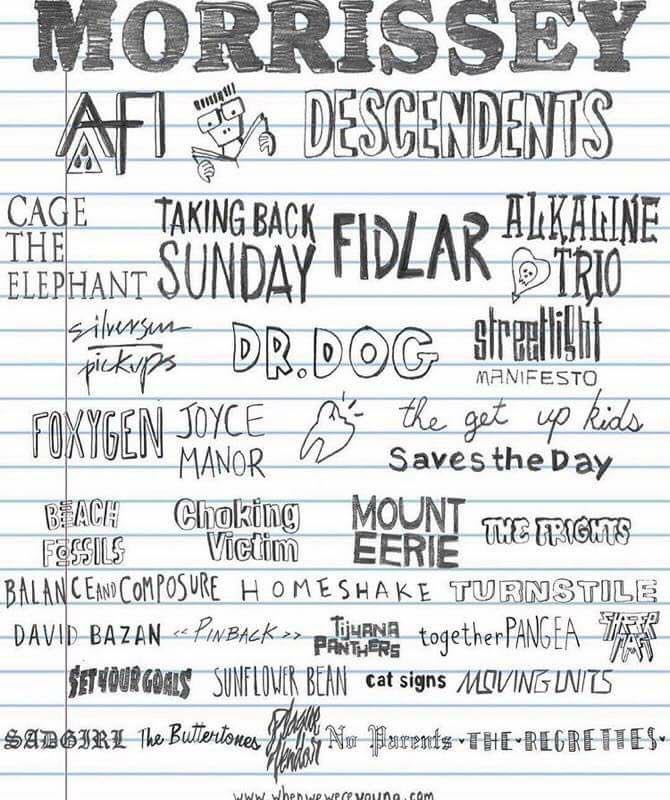 MORRISSEY
AFI DESCENDENTS
CAGE THE ELEPHANT
TAKING BACK SUNDAY
FIDLAR
ALKALINE TRIO
silversun pickups
DR. DOG
streetlight MANIFESTO
FOXYGEN
JOYCE MANOR
the get up kids
Saves the Day
BEACH FOSSILS
Choking Victim
MOUNT EERIE
THE FRIGHTS
BALANCE AND COMPOSURE HOMESHAKE TURNSTILE
DAVID BAZAN << PINBACK >> TIJUANA PANTHERS together PANGEA
SET YOUR GOALS SUNFLOWER BEAN cat signs MOVING UNITS
SADGIRL The Buttertones Plague Vendor No Parents · THE · REGRETTES ·
www.whenwewereyoung.com